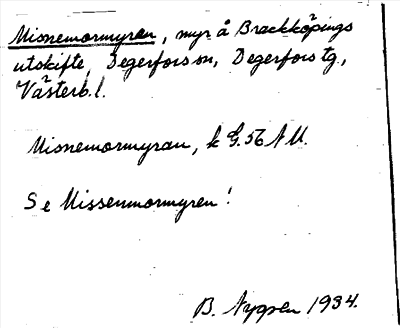 Misnemormyren, myr å Brackköpings
utskifte, Degerfors sn, Degerfors tg.,
Västerb. l.
Misnemormyran, k G. 56 N U.
Se Missenmormyren!
B. 1934.